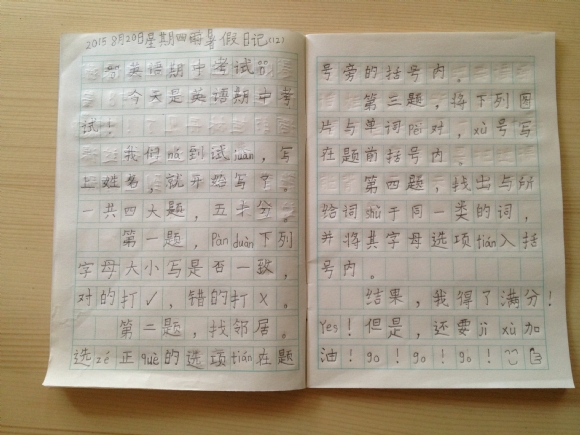 2015 8月20日星期四 雨 暑假日记(12)
英语期中考试
今天是英语期中考
试！
我们ná到试juàn，写
上姓名，就开始写了。
一共四大题，五十分。
第一题，Pàn duàn下列
字母大小写是否一致，
对的打✓，错的打×。
第二题，找邻居。
选zé正què的选项tián在题
号旁的括号内。
第三题，将下列图
片与单词Pèi对，xù号写
在题前括号内。
第四题，找出与所
给词shǔ于同一类的词，
并将其字母选项tián入括
号内。
结果，我得了满分！
Yes！但是，还要jì xù加
油！go！go！go！